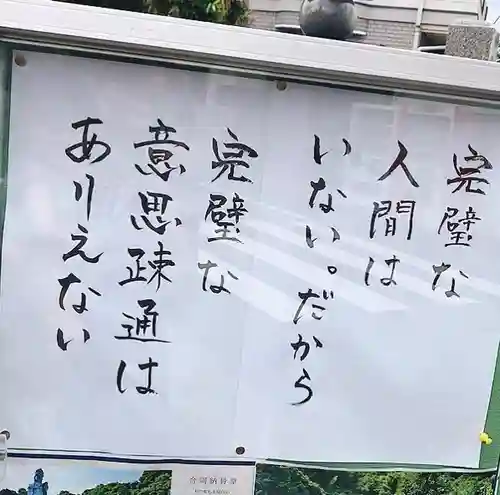 完璧な
人間は
いない。だから
完璧な
意思疎通は
ありえない
合同納骨堂